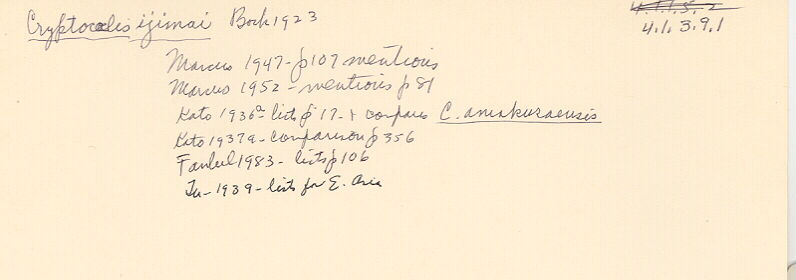 Cryptocelis ijimai Bock 1923
4.1.1.5.2
4.1.3.9.1
Marcus 1947- p107 mentions
Marcus 1952 - mentions p 81
Kato 1936a- lists p 17- + compares C. amakusaensis
Kato 1937a- comparison p 356
Faubel 1983- lists p106
Tu- 1939- lists for E. Asia